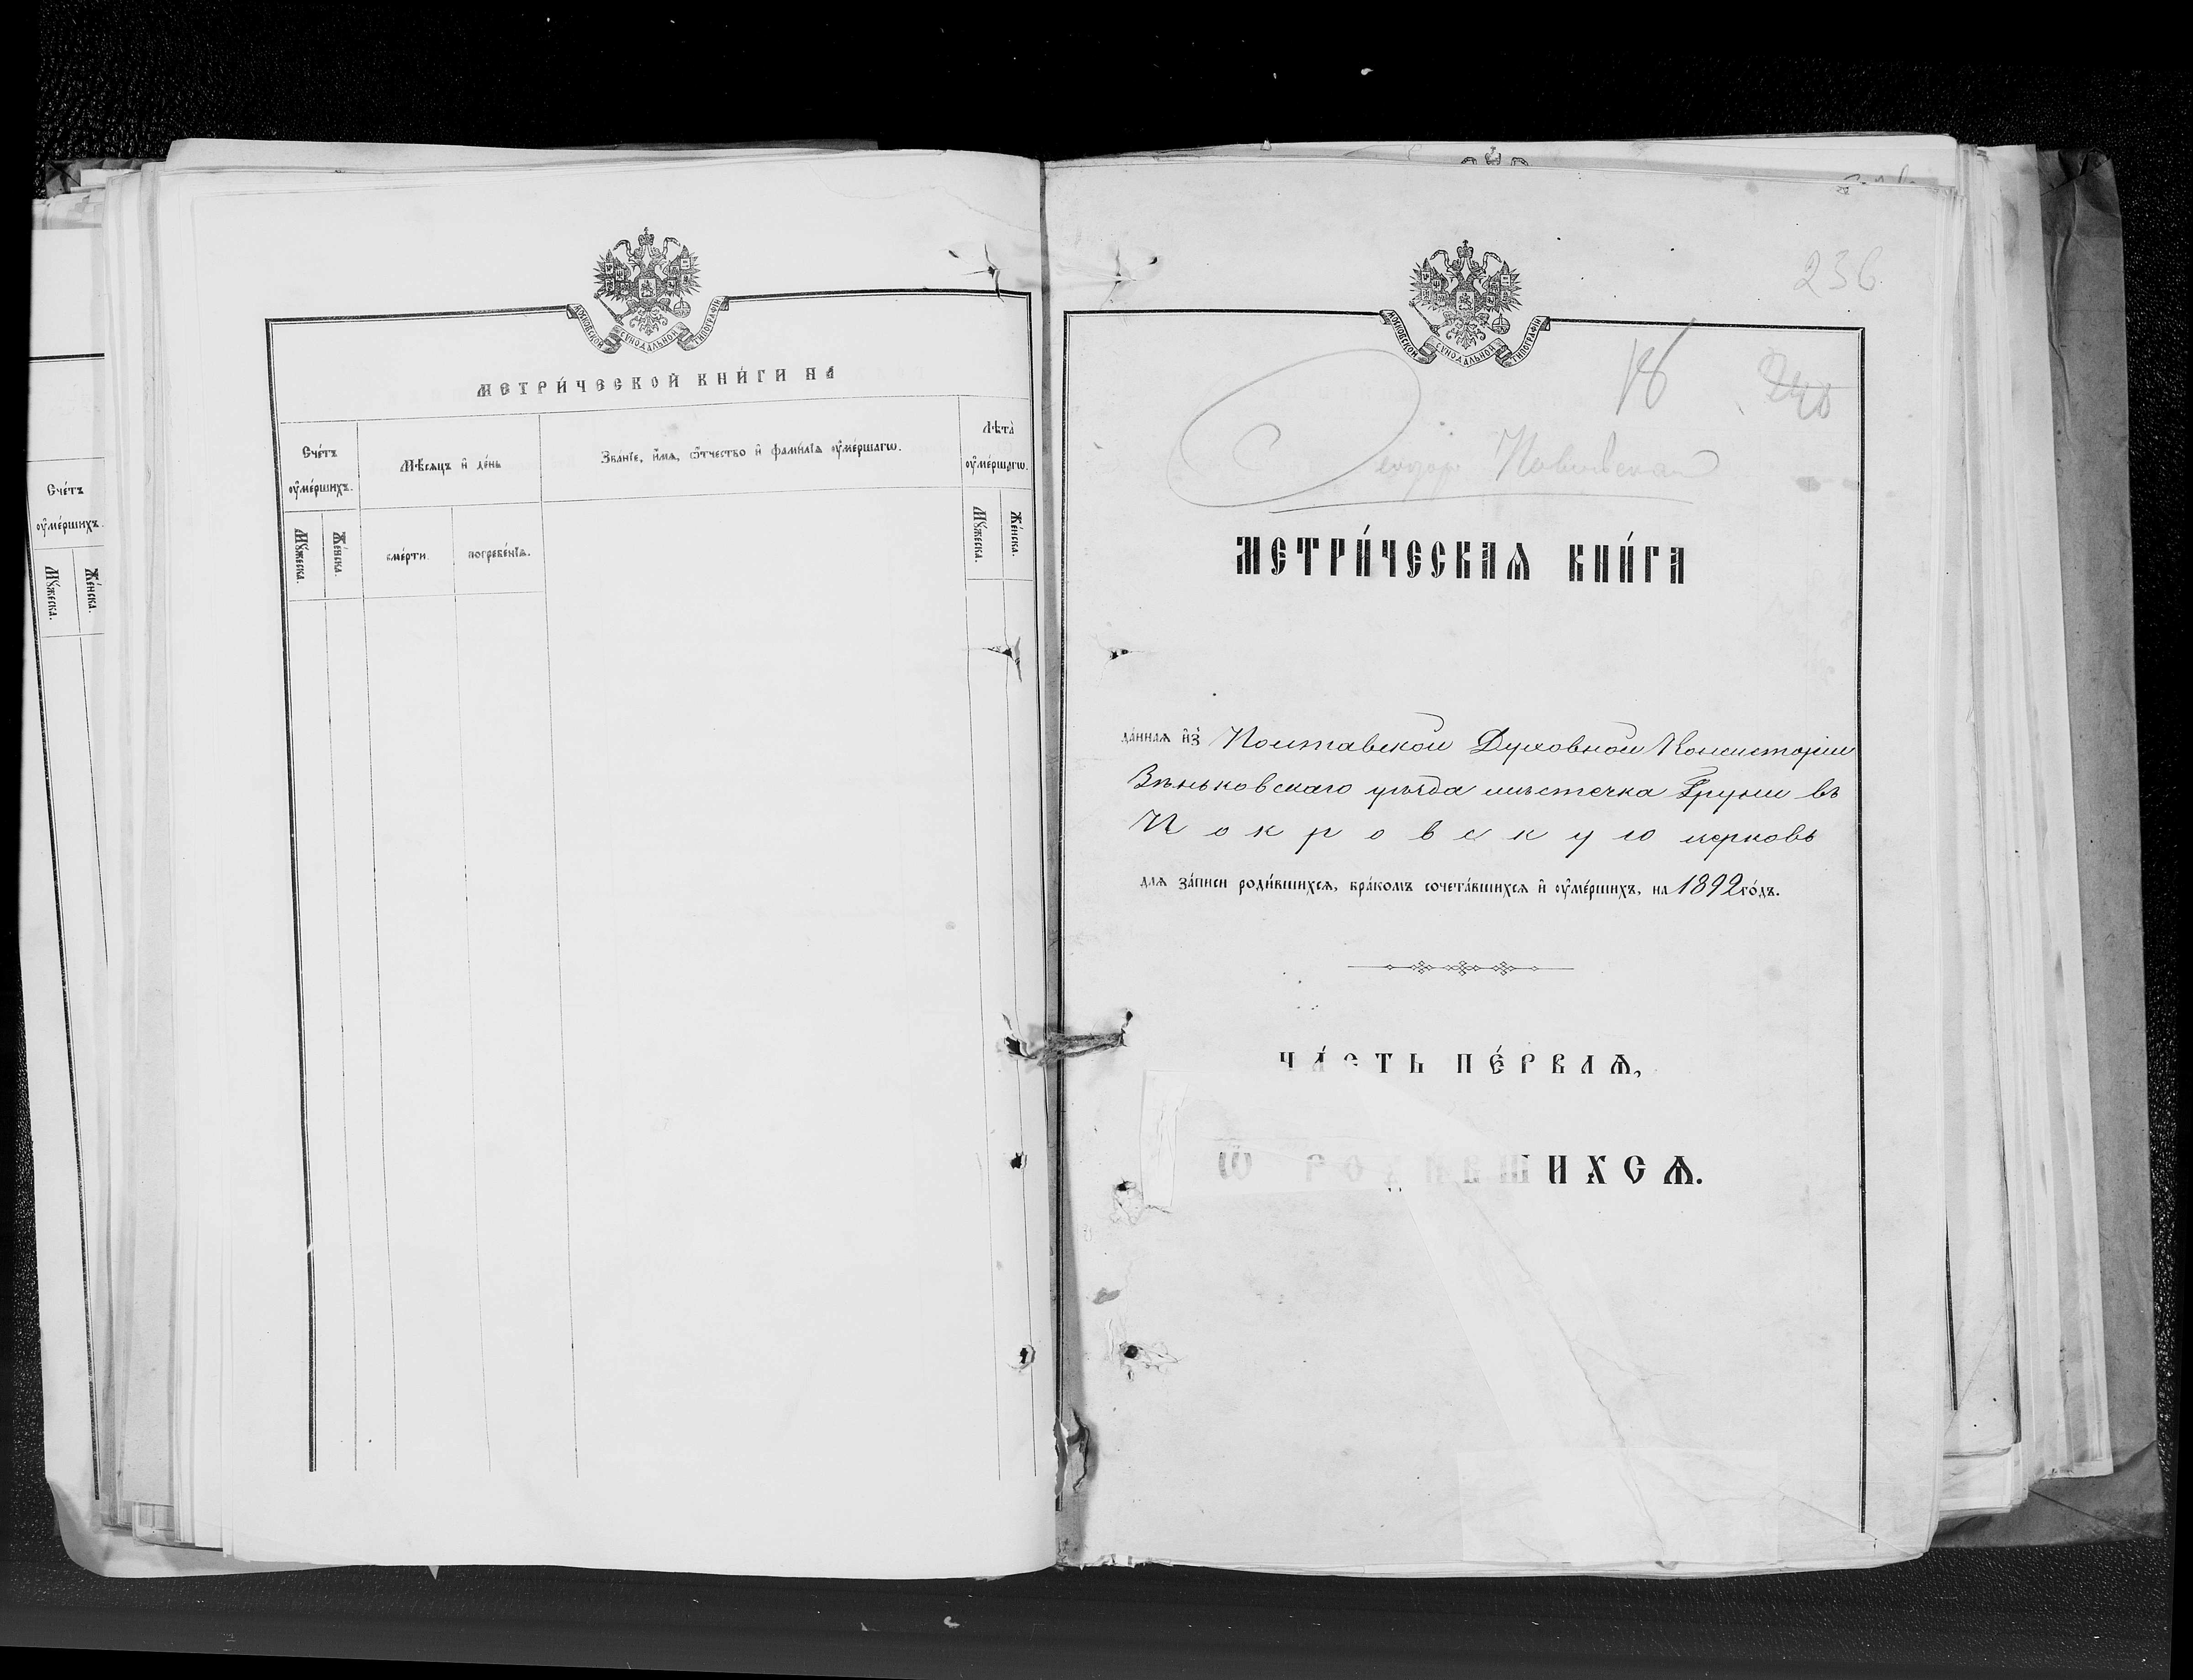 Счéтъ
оу҆мéршихъ.
Мꙋ́жеска.
Жéнска.
МОСКОВСКОЙ СѴНОДАЛЬНОЙ ТИПОГРАФІИ
МЕТРИ́ЧЕСКОЙ КНИ́ГИ НА
Счéтъ
оу҆мéршихъ.
Мѣ́сяцъ и҆ дéнь
Звáнїе, и҆́мѧ, ѻ҆́тчество и҆ фами́лїѧ оу҆мéршагѡ.
Лѣтà
оу҆мéршагѡ.
Мꙋ́жеска.
Жéнска.
смéрти.
погребéнїѧ.
Мꙋ́жеска.
Жéнска.
236
МОСКОВСКОЙ СѴНОДАЛЬНОЙ ТИПОГРАФІИ
МЕТРИ́ЧЕСКАѦ КНИ́ГА
дáннаѧ и҆з̾ Полтавской Духовной Консисторіи
Зѣньковскаго уѣзда мѣстечка Груни въ
Покровскую церковь
длѧ зáписи роди́вшихсѧ, брáкомъ сочетáвшихсѧ и҆ оу҆мéршихъ, на 1892 гóдъ.
ЧÁСТЬ ПÉРВАѦ,
Ѡ҆ РОДИ́ВШИХСѦ.